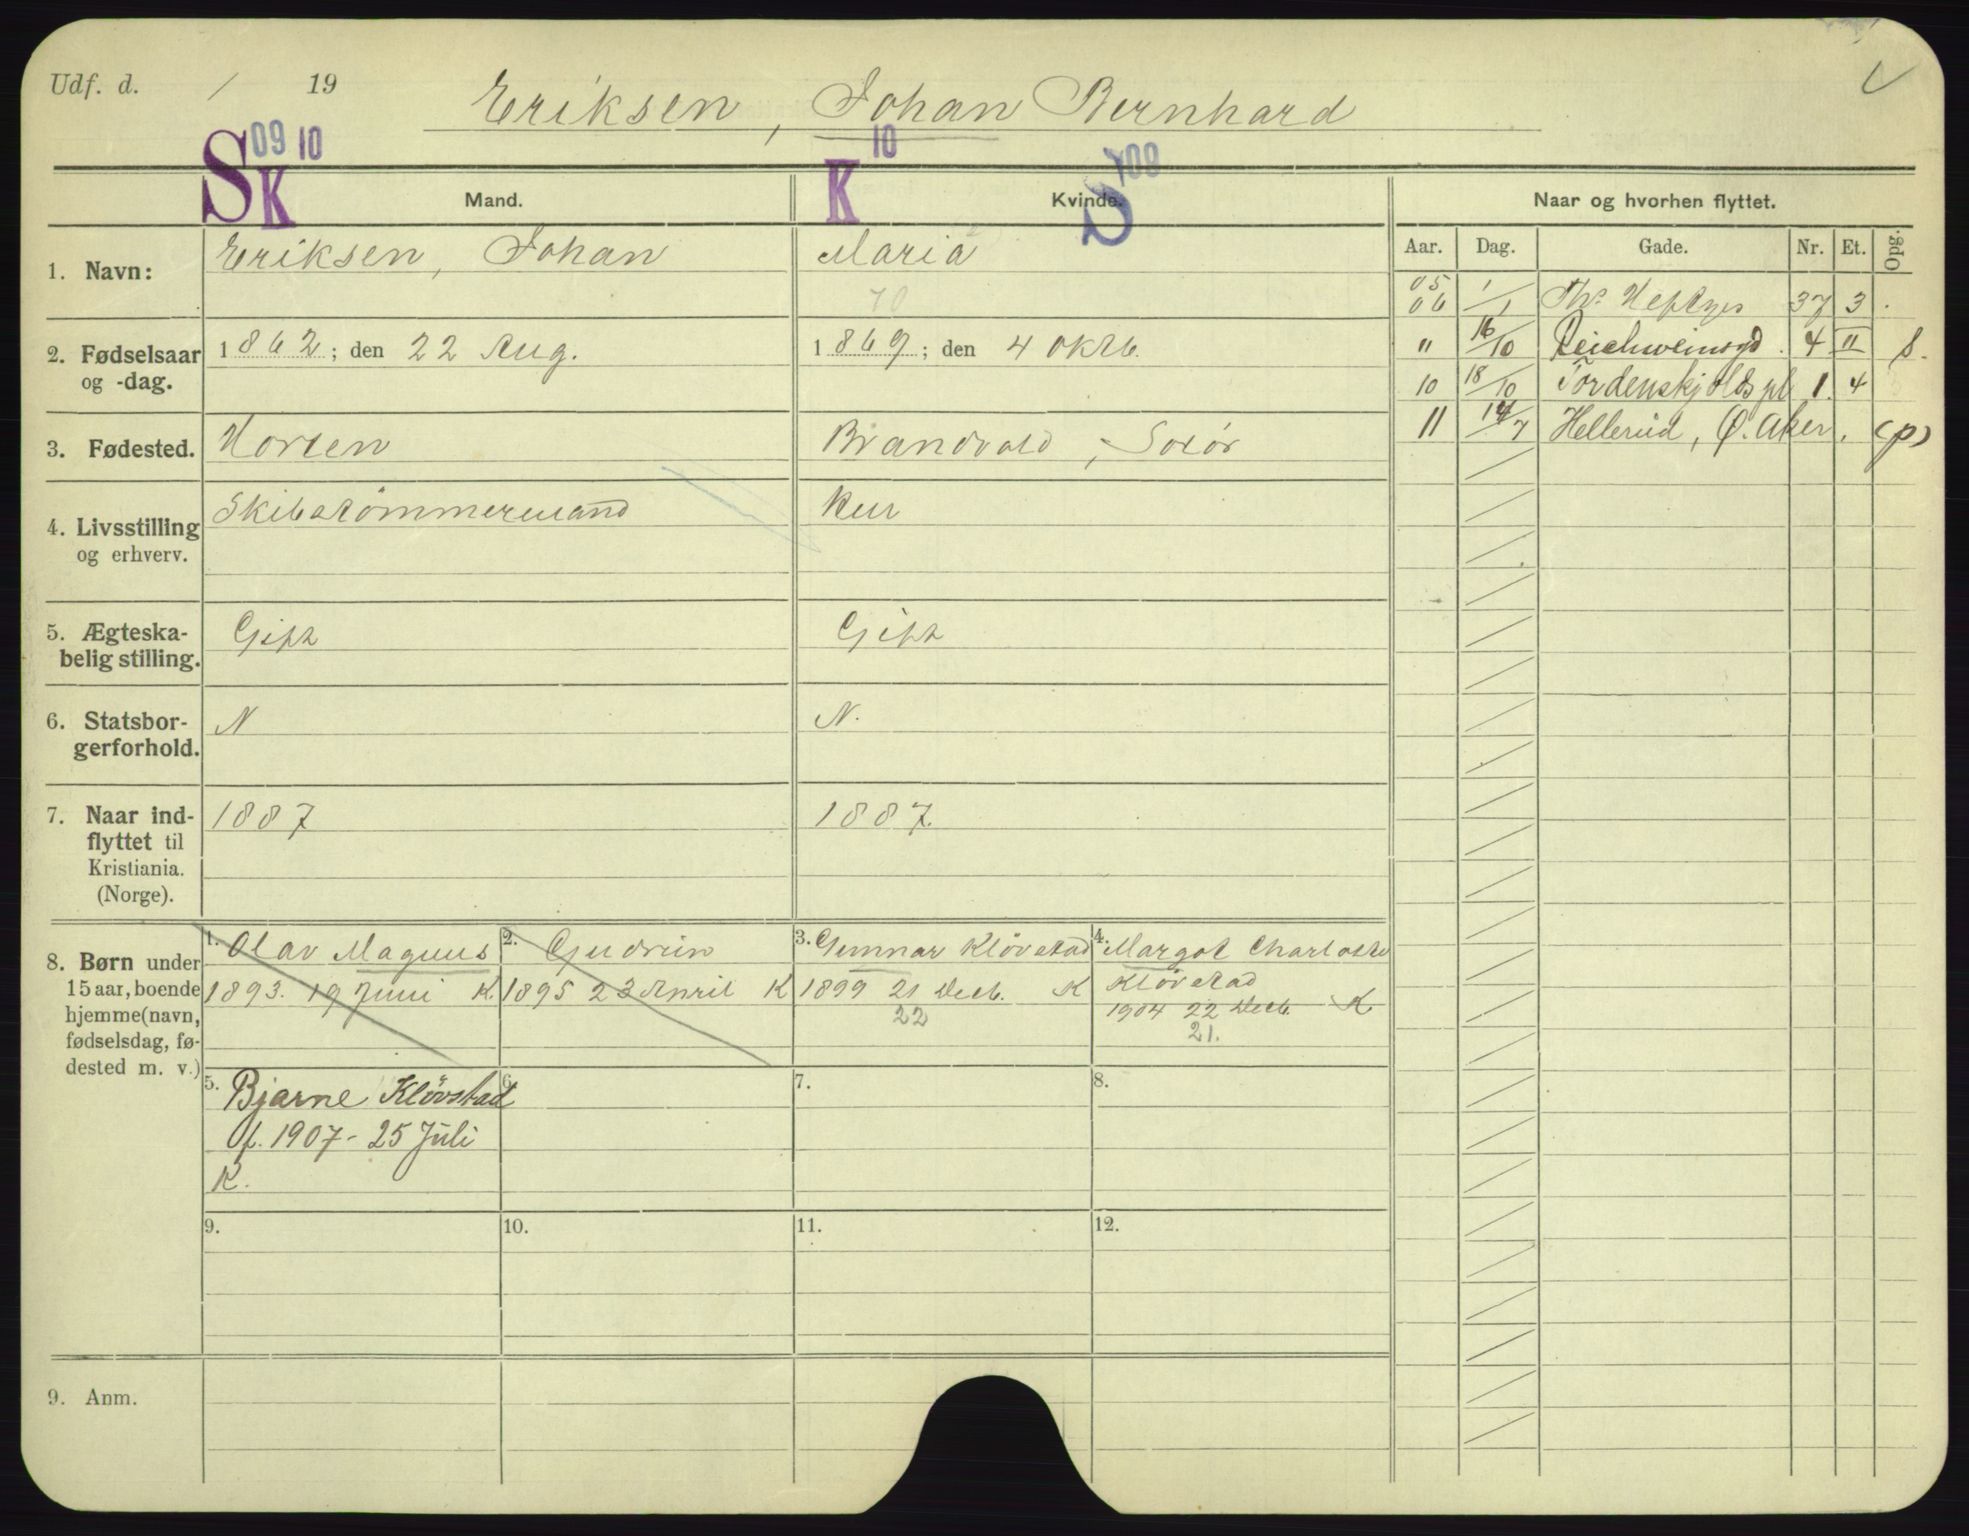 Udf. d. / 19
Eriksen, Johan Bernhard
S 09 K 10
K 10 S 08
Mand.
Kvinde.
Naar og hvorhen flyttet.
Aar. Dag. Gade. Nr. Et. Opg.
1. Navn:
Eriksen, Johan
Maria
70
2. Fødselsaar
og -dag.
1862; den 22 Aug.
1869; den 4 Oktb.
3. Fødested.
Horten
Brandvold, Solør
4. Livsstilling
og erhverv.
Skibstømmermand
Hur
5. Ægteska-
belig stilling.
Gift
Gift
6. Statsbor-
gerforhold.
N
N.
7. Naar ind-
flyttet til
Kristiania.
(Norge).
1887
1887.
05
06 1/1 Ths. Heftyes 37 3
" 16/10 Reichweinsgd. 4 II S.
10 18/10 Tordenskjolds pl 1. 4
11 14/7 Hellerud, Ø. Aker. (p)
8. Børn under
15 aar, boende
hjemme (navn,
fødselsdag, fø-
dested m. v.)
1. Olav Magnus
1893. 19 Juni K.
2. Gudrun
1895 23 April K
3. Gunnar Kløvstad
1899 21 Decb. K
22
4. Margot Charlotte
Kløvstad
1904 22 Decb. K
21.
5. Bjarne Kløvstad
f. 1907 - 25 Juli
K.
6.
7.
8.
9.
10.
11.
12.
9. Anm.